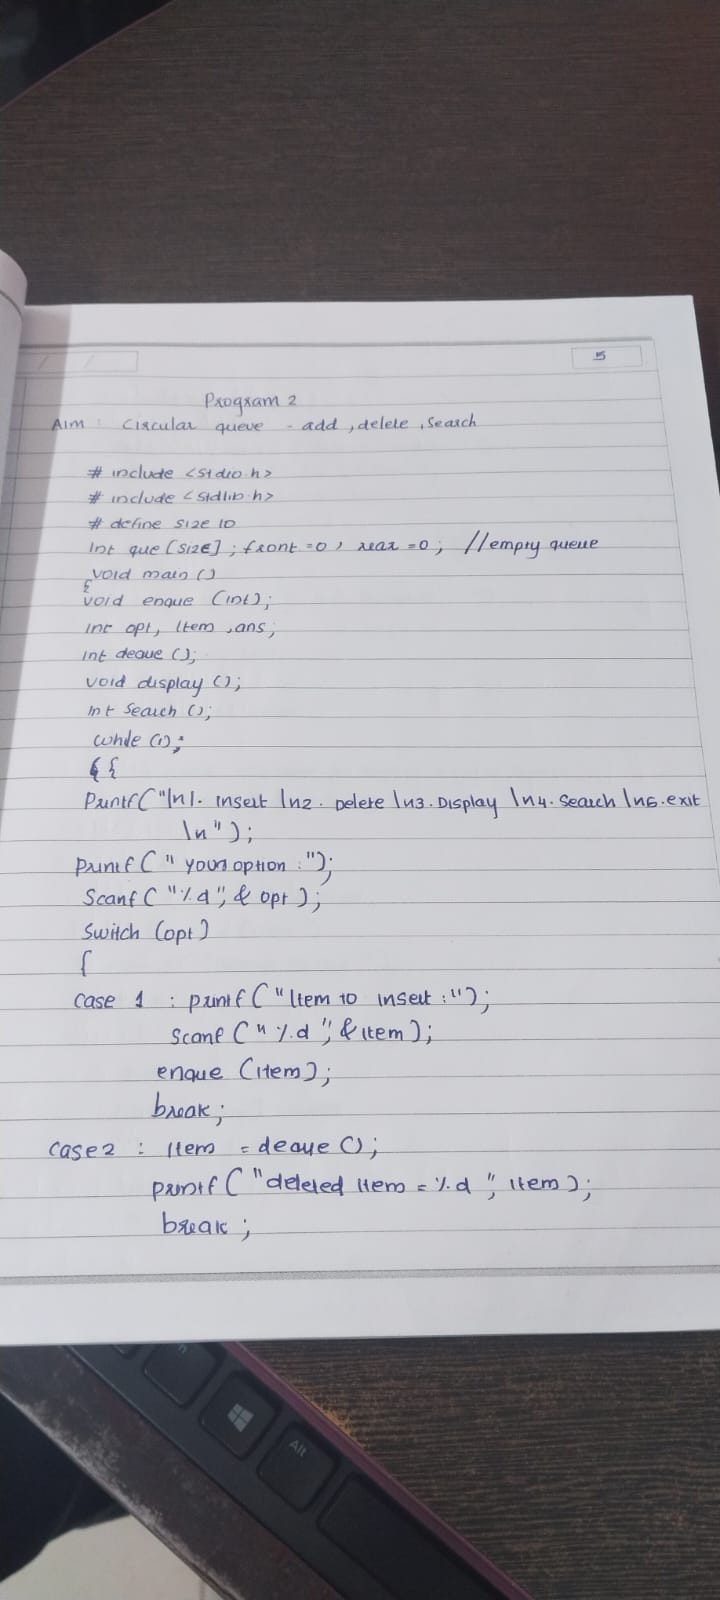 5
Program 2
Aim : Circular queue - add, delete, search
# include <stdio.h>
# include <stdlib.h>
# define size 10
Int que [size]; front =0, rear =0; //empty queue
void main ()
{
void enque (int);
int opt, Item, ans;
int deque ();
void display ();
int search ();
while (1);
{
Printf("\n1. insert \n2. Delete \n3. Display \n4. Search \n5. exit
\n");
printf (" your option :");
Scanf ("%d", & opt);
Switch (opt)
{
case 1 : printf ("Item to insert :");
scanf ("%d", & item);
enque (item);
break;
case 2 : Item = deque ();
printf ("deleted item = %d", item);
break;
n
Alt